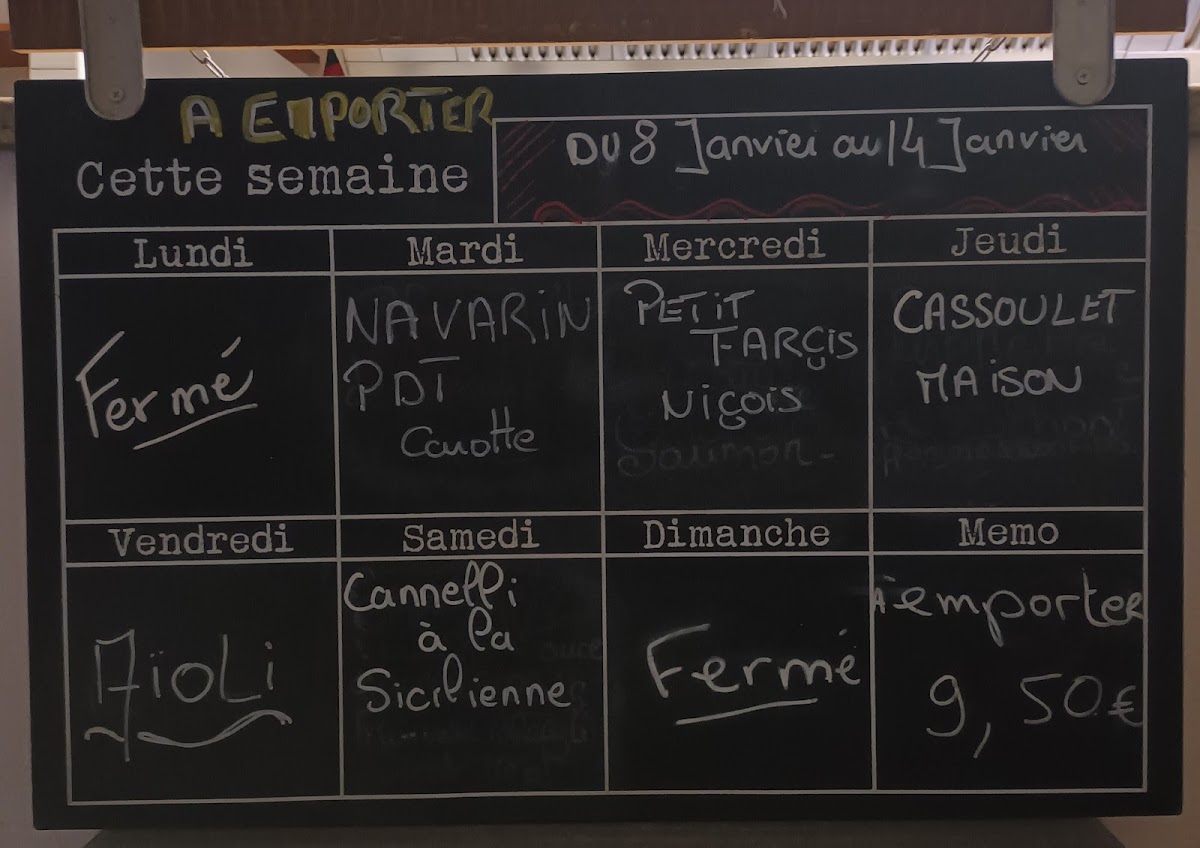 A EMPORTER
Cette semaine
DU 8 Janvier au 14 Janvier
Lundi
Mardi
Mercredi
Jeudi
Fermé
NAVARIN
PDT
Carotte
PETIT
FARÇIS
NIÇOIS
Saumon
CASSOULET
MAISON
Vendredi
Samedi
Dimanche
Memo
AïoLi
Cannelli
à la
Sicilienne
Fermé
A emporter
9,50€